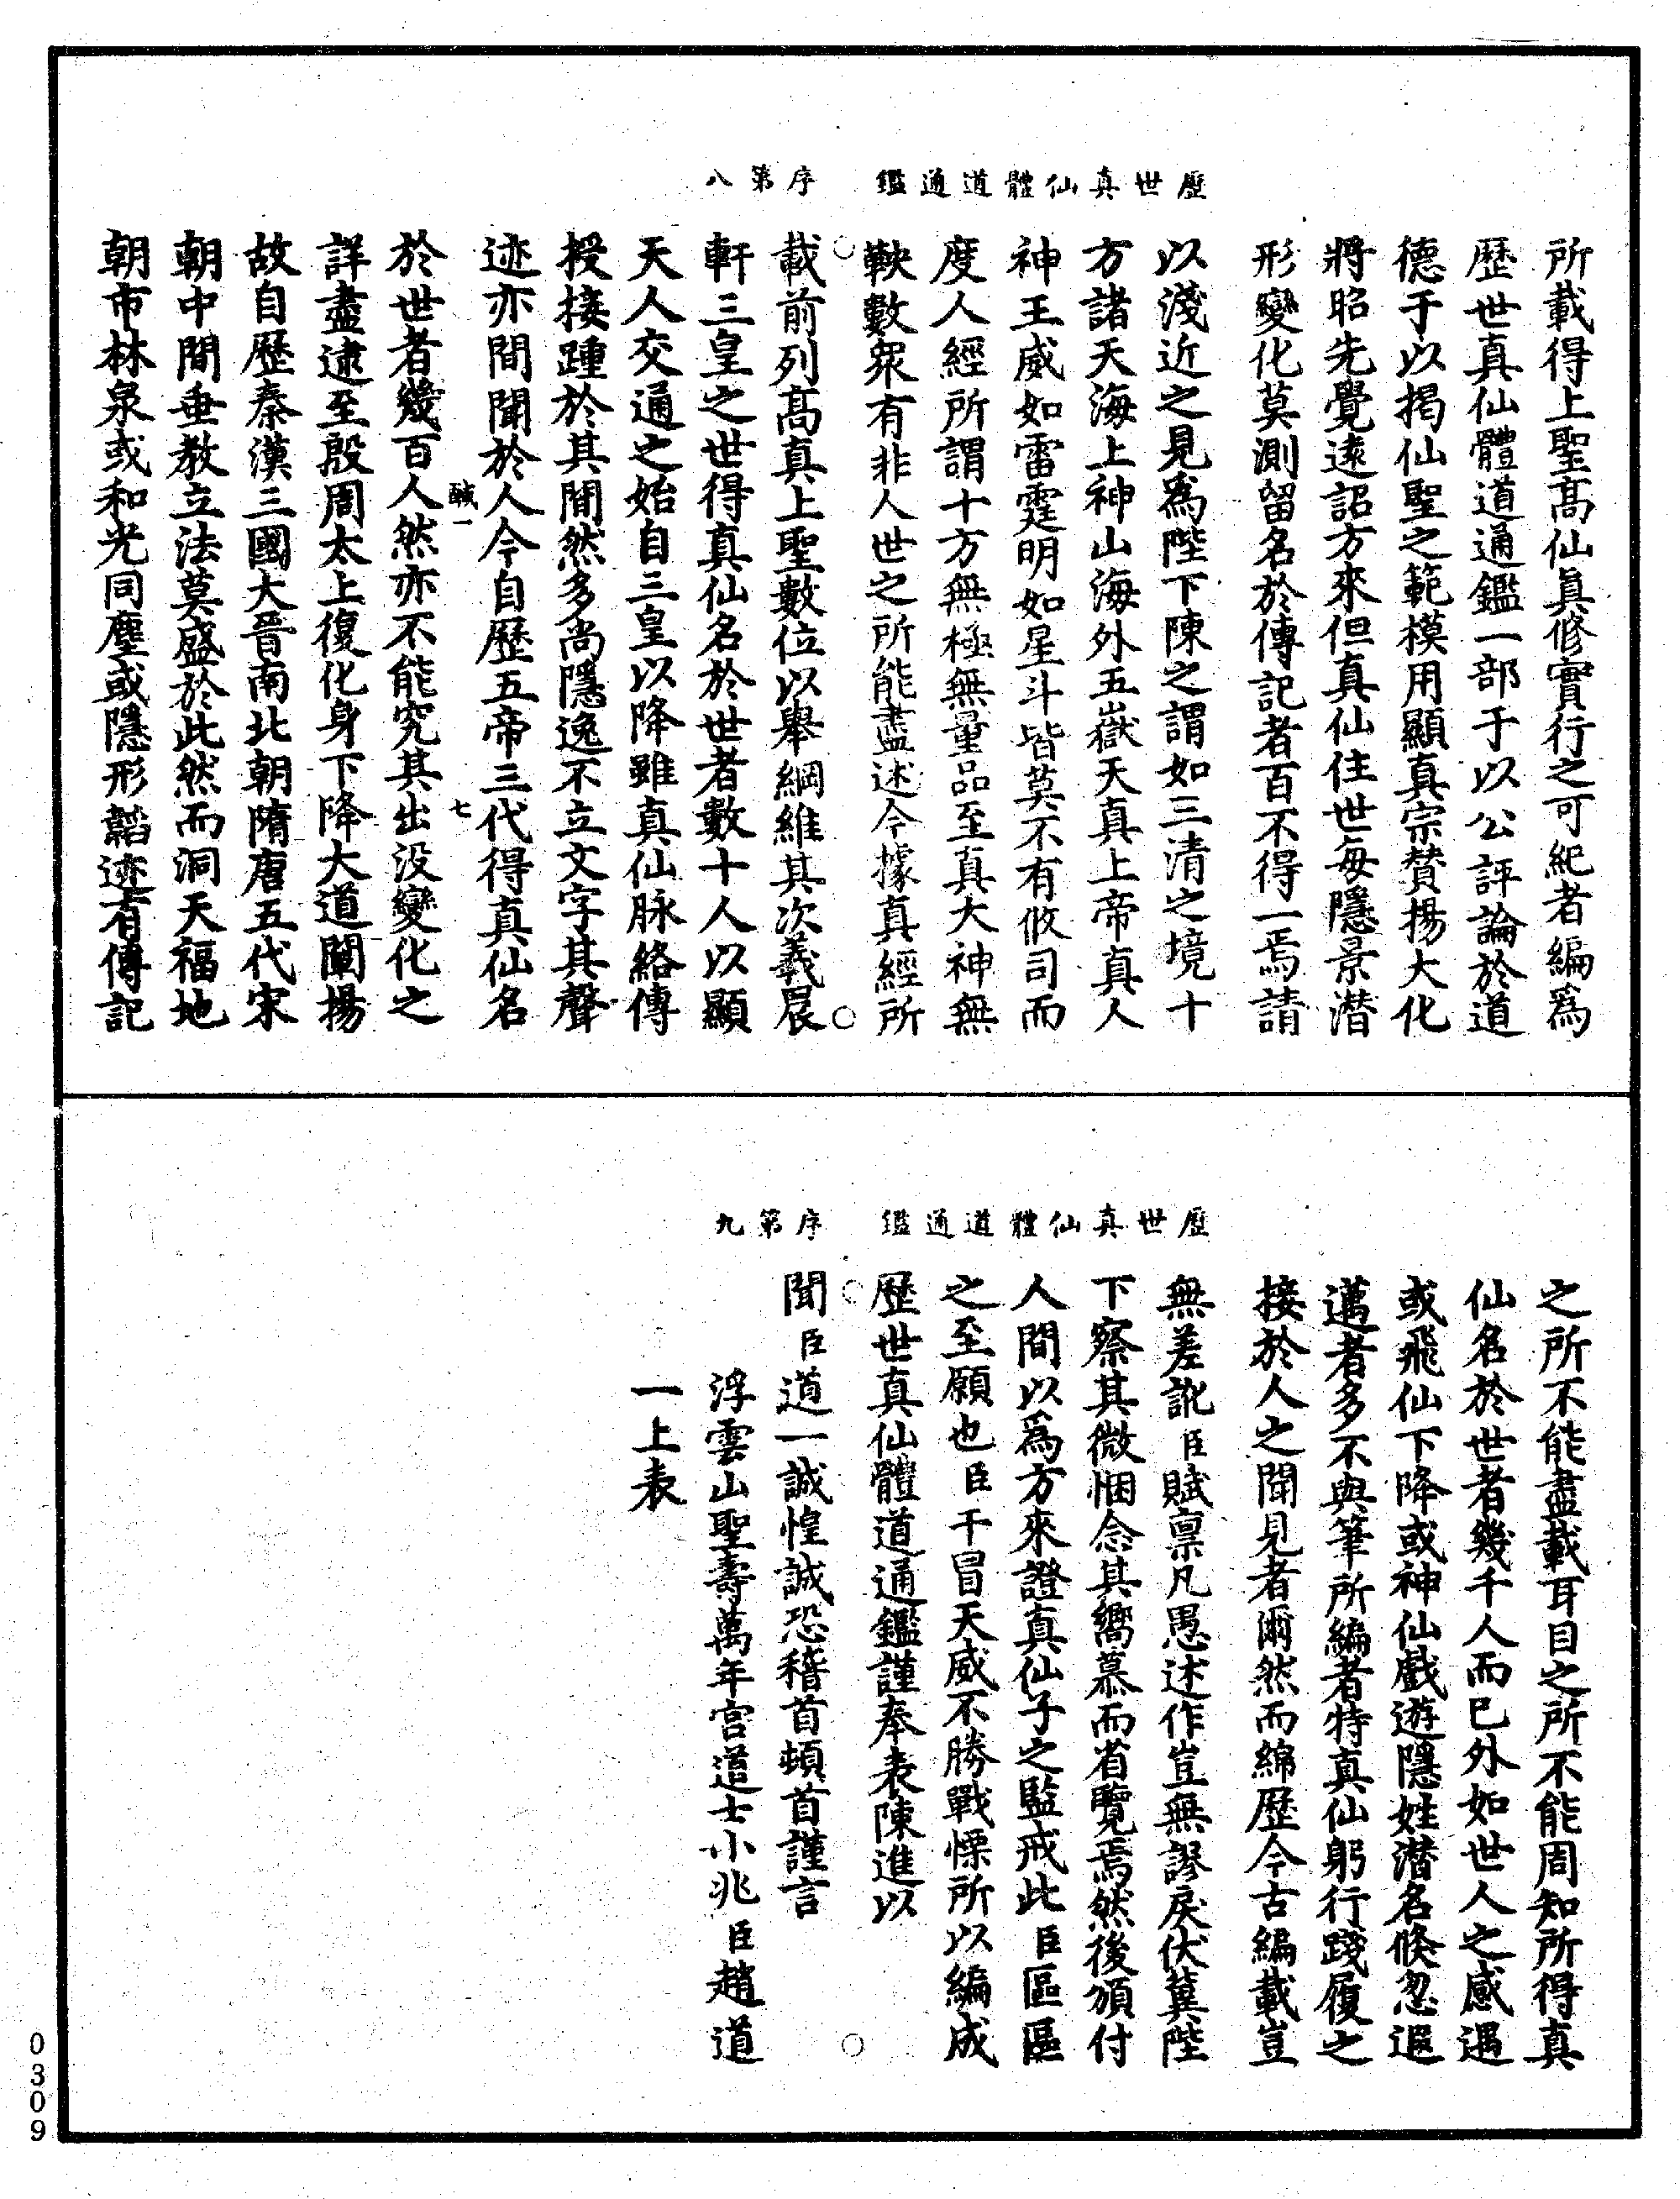 歷世真仙體道通鑑　序第八
所載得上聖高仙眞修實行之可紀者編爲
歷世真仙體道通鑑一部于以公評論於道
德于以揭仙聖之範模用顯真宗賛揚大化
將昭先覺遠詔方來但真仙住世每隱景潜
形變化莫測留名於傳記者百不得一焉請
以淺近之見爲陛下陳之謂如三清之境十
方諸天海上神山海外五嶽天真上帝真人
神王威如雷霆明如星斗皆莫不有攸司而
度人經所謂十方無極無量品至真大神無
鞅數衆有非人世之所能盡述今據真經所
載前列高真上聖數位以舉綱維其次羲晨
軒三皇之世得真仙名於世者數十人以顯
天人交通之始自三皇以降雖真仙脉絡傳
授接踵於其間然多尚隱逸不立文字其聲
迹亦間聞於人今自歷五帝三代得真仙名
鹹一　七
於世者幾百人然亦不能究其出没變化之
詳盡逮至殷周太上復化身下降大道闡揚
故自歷秦漢三國大晉南北朝隋唐五代宋
朝中間垂教立法莫盛於此然而洞天福地
朝市林泉或和光同塵或隱形韜迹有傳記
歷世真仙體道通鑑　序第九
之所不能盡載耳目之所不能周知所得真
仙名於世者幾千人而已外如世人之感遇
或飛仙下降或神仙戲遊隱姓潜名倏忽遐
邁者多不與筆所編者特真仙躬行踐履之
接於人之聞見者爾然而綿歷今古編載豈
無差訛臣賦禀凡愚述作豈無謬戾伏冀陛
下察其微悃念其嚮慕而省覽焉然後頒付
人間以爲方來證真仙子之監戒此臣區區
之至願也臣干冒天威不勝戰慄所以編成
歷世真仙體道通鑑謹奉表陳進以
聞臣道一誠惶誠恐稽首頓首謹言
浮雲山聖壽萬年宮道士小兆臣趙道
一上表
0309